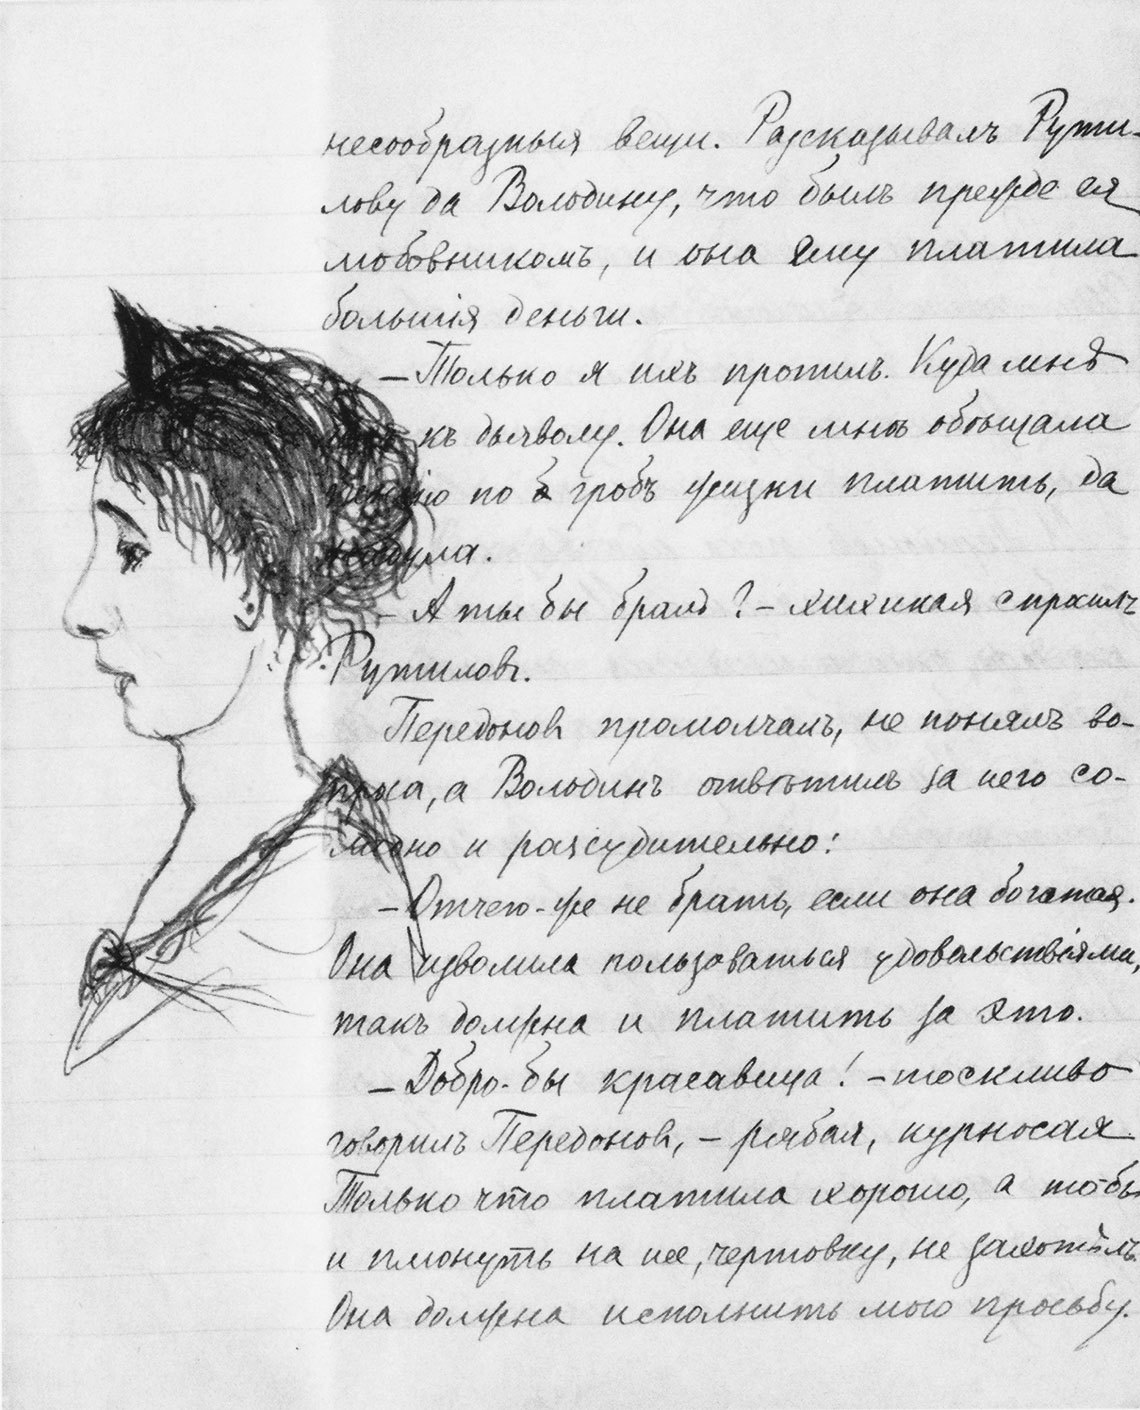 несообразныя вещи. Разсказывалъ Рути-
лову да Володину, что былъ прежде ея
любовникомъ, и она ему платила
большія деньги.
—Только я ихъ пропилъ. Куда мнѣ
къ дьяволу. Она еще мнѣ обѣщала
пенсію по гробъ жизни платить, да
надула.
— А ты бы бралъ? — хихикая спросилъ
Рутиловъ.
Передоновъ промолчалъ, не понялъ во-
проса, а Володинъ отвѣтилъ за него со-
лидно и разсудительно:
—Отчего-же не брать, если она богатая.
Она изволила пользоваться удовольствіями,
такъ должна и платить за это.
—Добро-бы красавица! — тоскливо
говорилъ Передоновъ, — рябая, курносая.
Только что платила хорошо, а то-бы
и плюнуть на нее, чертовку, не захотѣлъ.
Она должна исполнить мою просьбу.